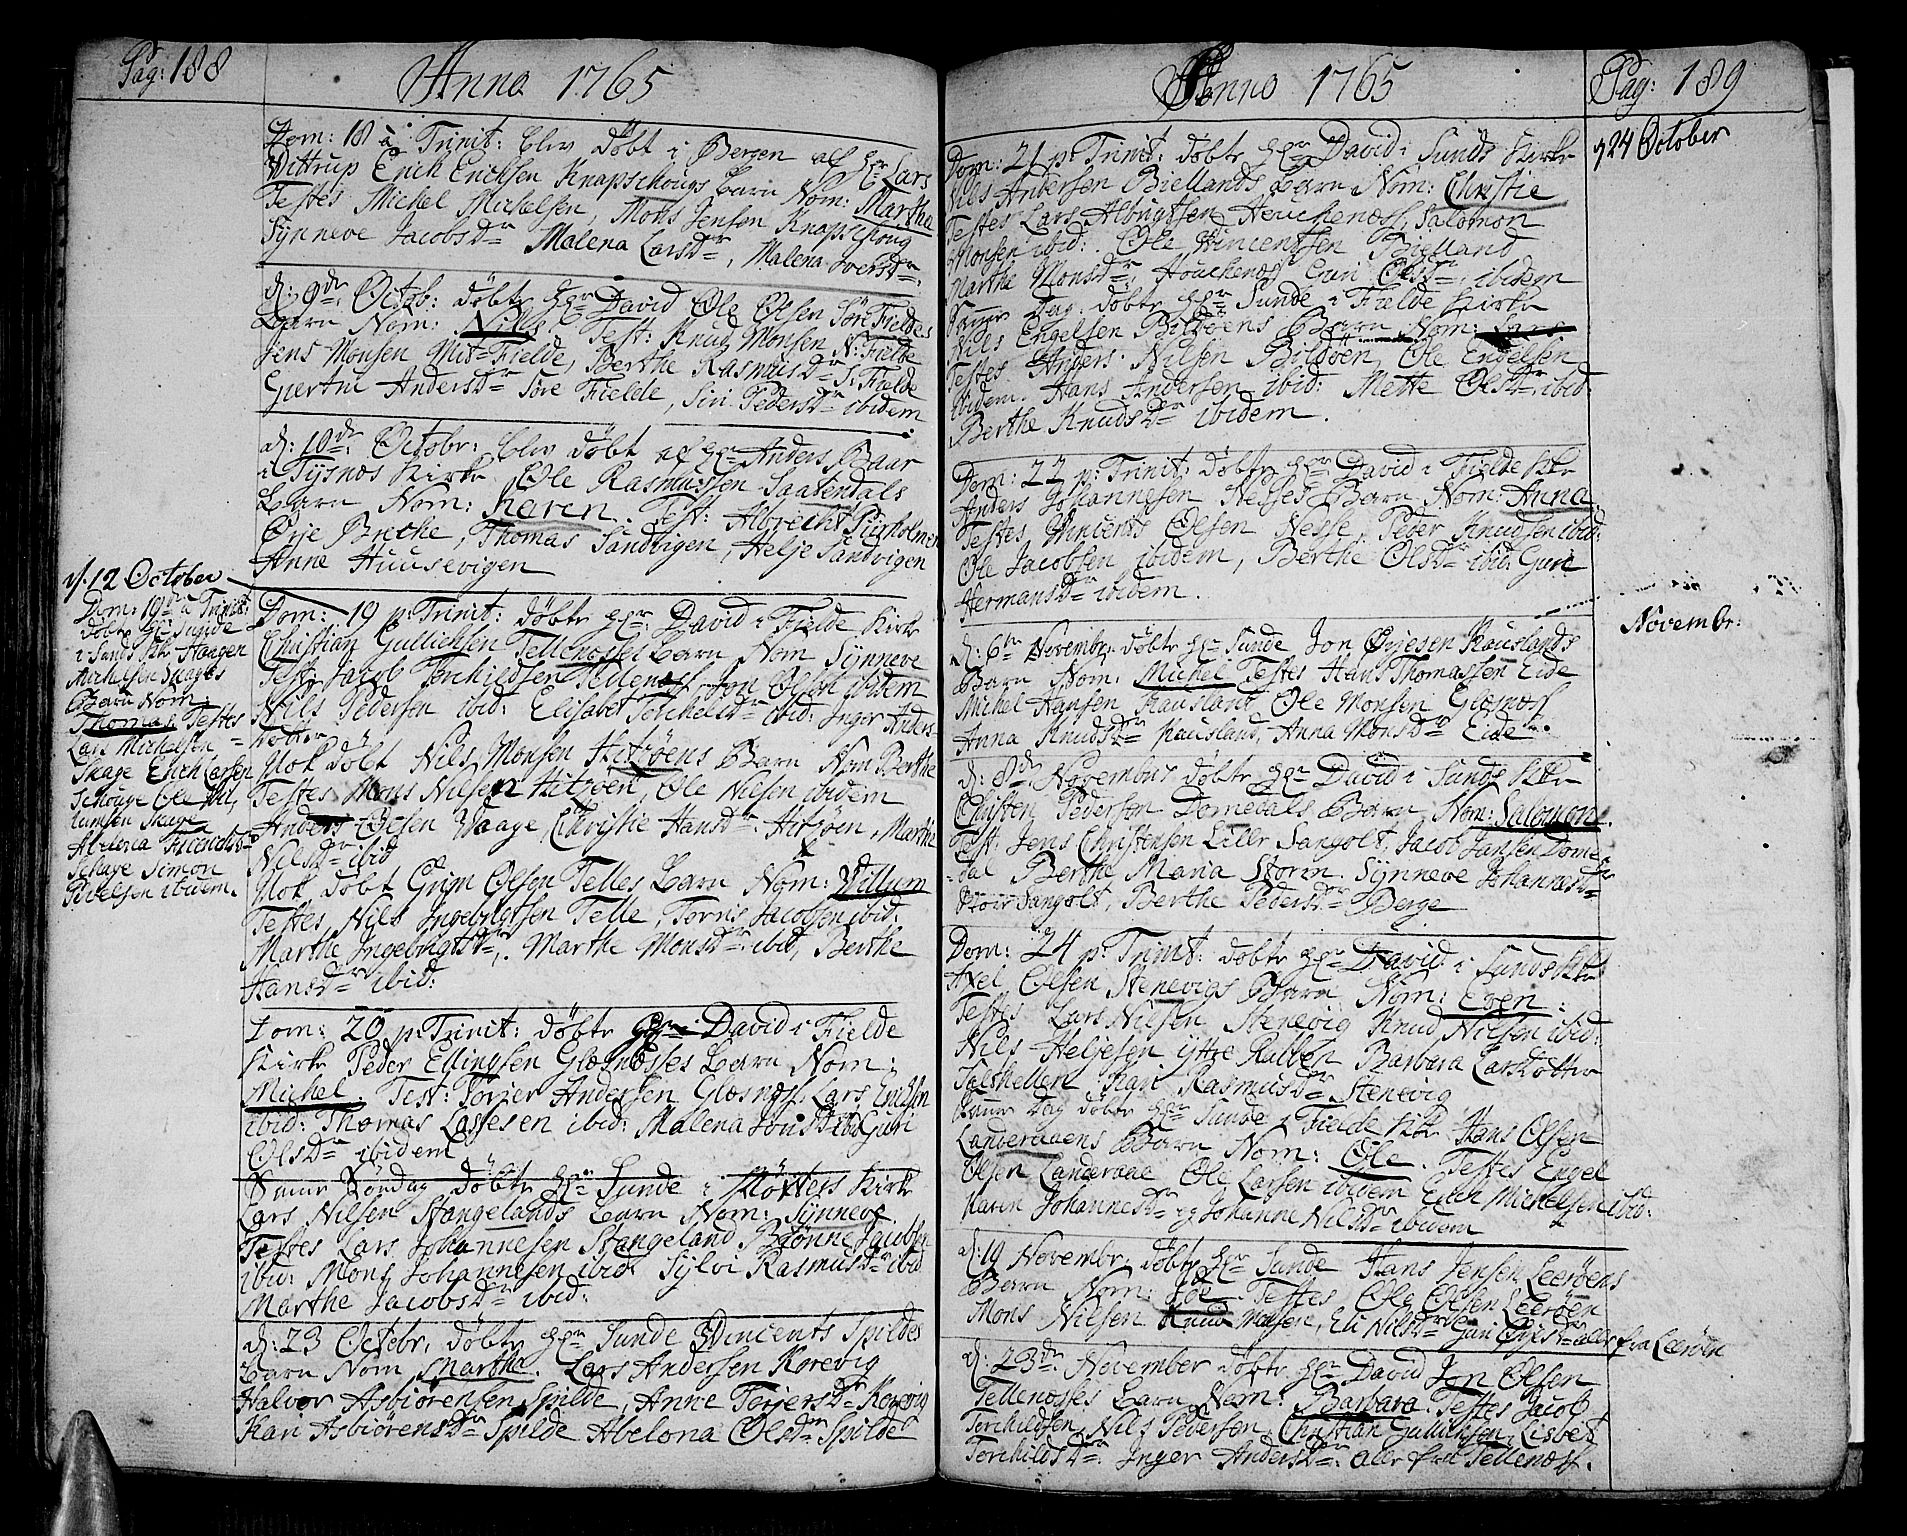 Pag: 188
Anno 1765
Dom: 18 à Trinit: blev döbt i Bergen af Hr Lars
Wittrup Erich Erichsen Knapschougs Barn Nom: Martha
Testes Michel Michelsen, Mons Jensen Knapschoug
Synneve Jacobsdr Malena Larsdr, Malena Iversdr.
d: 9de Octob: döbte Hr David Ole Olsen Söre Fieldes
Barn Nom: Nills Test: Knud Monsen N: Fielde
Jens Monsen Mit-Fielde, Berthe Rasmusdr S: Fielde
Giertrue Andersdr Söre Fielde, Siri Pedersdr ibidem
d: 10de Octobr: blev döbt af Hr Anders Baar
i Tysnes Kirke Ole Rasmussen Saatendals
Barn Nom: Karen. Test: Albrecht Pürholmen
Örje Brethe, Thomas Sandvigen, Helje Sandvigen
Anne Huusevigen
d. 12 October
Dom: 19de à Trinit:
döbte Hr Sunde
i Sunds Kk Haagen
Michelsen Skages
Barn Nom:
Thomas Testes
Lars Michelsen
Skage Erich Larsen
Schouge Ole
Skage
Abelena
Skage Simon
ibidem.
Dom: 19 p: Trinit: döbte Hr: David i Fielde Kirke
Christian Gullichsen Tellenesses Barn Nom Synneve
Test: Jacob Torchildsen Telleness, Jon Olsen ibidem
Nils Pedersen ibid: Elisabet Torchelsdr ibid: Inger Anders-
dotter
Nok döbt Nils Monsen Hitzöens Barn Nom Berthe
Testes Mons Nilsen Hitzöen, Ole Nilsen ibidem
Anders Olsen Waage, Christie Hansdr. Hitzöen, Marthe
Nilsdr ibid
Nok döbt Grim Olsen Telles Barn Nom: Willum
Testes Nils Ingebrigtsen Telle, Tornis Jacobsen ibid:
Marthe Ingebrigtsdr, Marthe Monsdr ibid, Berthe
Hansdr ibid:
Dom: 20 p: Trinit: döbte Hr David i Fielde
Kirke Peder Ellingsen Glesnesses Barn Nom:
Michel. Test: Torjer Andersen Glesness, Lars Erichsen
ibid: Thomas Lassesen ibid: Malena Jonsdr ibid Guri
Olsdr ibidem
Samme Söndag döbte Hr Sunde i Kirke
Lars Nilsen Stangelands Barn Nom: Synneve.
Testes Lars Johannesen Stangeland. Brönne Jacobsen
ibid: Mons Johannesen ibid: Sylvi Rasmusdr ibid
Marthe Jacobsdr ibid:
d: 23 Octobr, döbte Hr Sunde Wincents Spildes
Barn Nom. Martha. Lars Andersen Korevig
Halvor Asbiörensen Spilde, Anne Torjersdr Korevig
Kari Asbiörensdr Spilde Abelona Olsdr Spilde
Anno 1765
Pag: 189
d 24 October
Dom: 21 p: Trinit: döbte Hr David i Sunds Kirke
Nils Andersen Biellands Barn Nom: Christie
Testes Lars Albrigtsen Houcheness, Salomon
Monsen ibid: Ole Wincentsen Bielland
Marthe Monsdr Houchenes Eren Olsdr ibidem
Samme Dag döbte Hr Sunde i Fielde Kirke
Nils Engelsen Bildöens Barn Nom: Lars
Testes Anders Nilsen Bildöen, Ole Engelsen
ibidem. Hans Andersen ibid: Mette Olsdr ibid:
Berthe Knudsdr ibidem.
Dom: 22 p: Trinit: döbte Hr: David i Fielde Kk
Anders Johannesen Nesses Barn Nom: Anna
Testes Wincents Olsen Nesse, Peder Knudsen ibid:
Ole Jacobsen ibidem, Berthe Olsdr ibid: Guri
Hermansdr ibidem.
Novembr:
d: 6te November döbte Hr Sunde Jon Örjesen Kauslands
Barn Nom: Michel Testes Hans Thomassen Eide
Michel Hansen Kausland Ole Monsen Glesness
Anna Knudsdr Kausland, Anna Monsdr Eide.
d: 8de November döbte Hr David i Sunds Kk
Christen Pedersen Domedals Barn Nom: Salomon.
Test: Jens Christensen Lille Sangolt, Jacob Jansen Dome-
dal Berthe Maria Storm. Synneve Johannesdr
Stoir Sangolt, Berthe Pedersdr Berge
Dom: 24 p: Trinit: döbte Hr David i Sunds Kk
Axel Olsen Stenevigs Barn Nom: Even:
Testes Lars Nilsen Stenevig Knud Nilsen ibid:
Nils Heljesen yttre Kalben Barbara Larsdotter
Kari Rasmusdr Stenevig
Samme Dag döbte Hr Sunde i Fielde Kk Hans Olsen
Landeraaens Barn Nom: Ole. Testes Engel
Olsen Landeraae Ole Larsen ibidem Erich Michelsen ibid:
Karin Johannesdr og Johanne Nilsdr ibidem
d: 19 Novembr. döbte Hr Sunde Hans Jensen Leeröens
Barn Nom: Testes Ole Olsen Leeröen
Mons Nilsen Knud Monsen, Eli Nilsdr Guri alle fra Leeröen
d: 23de November döbte Hr David Jon Olsen
Tellenesses Barn Nom: Barbara. Testes Jacob
Torchildsen, Nils Pedersen, Christian Gullichsen, Lisbet
Torchildsdr. Inger Andersdr. alle fra Tellenæss.